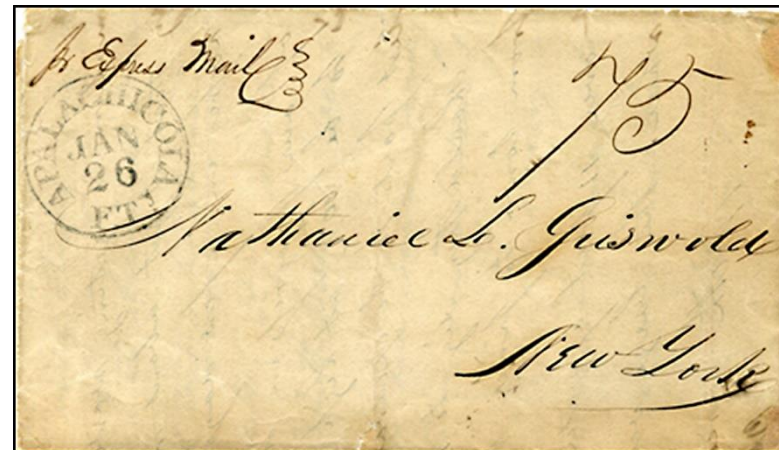 pr Express Mail
75
APALACHICOLA
JAN
26
F.T.
Nathaniel L. Griswold
New York